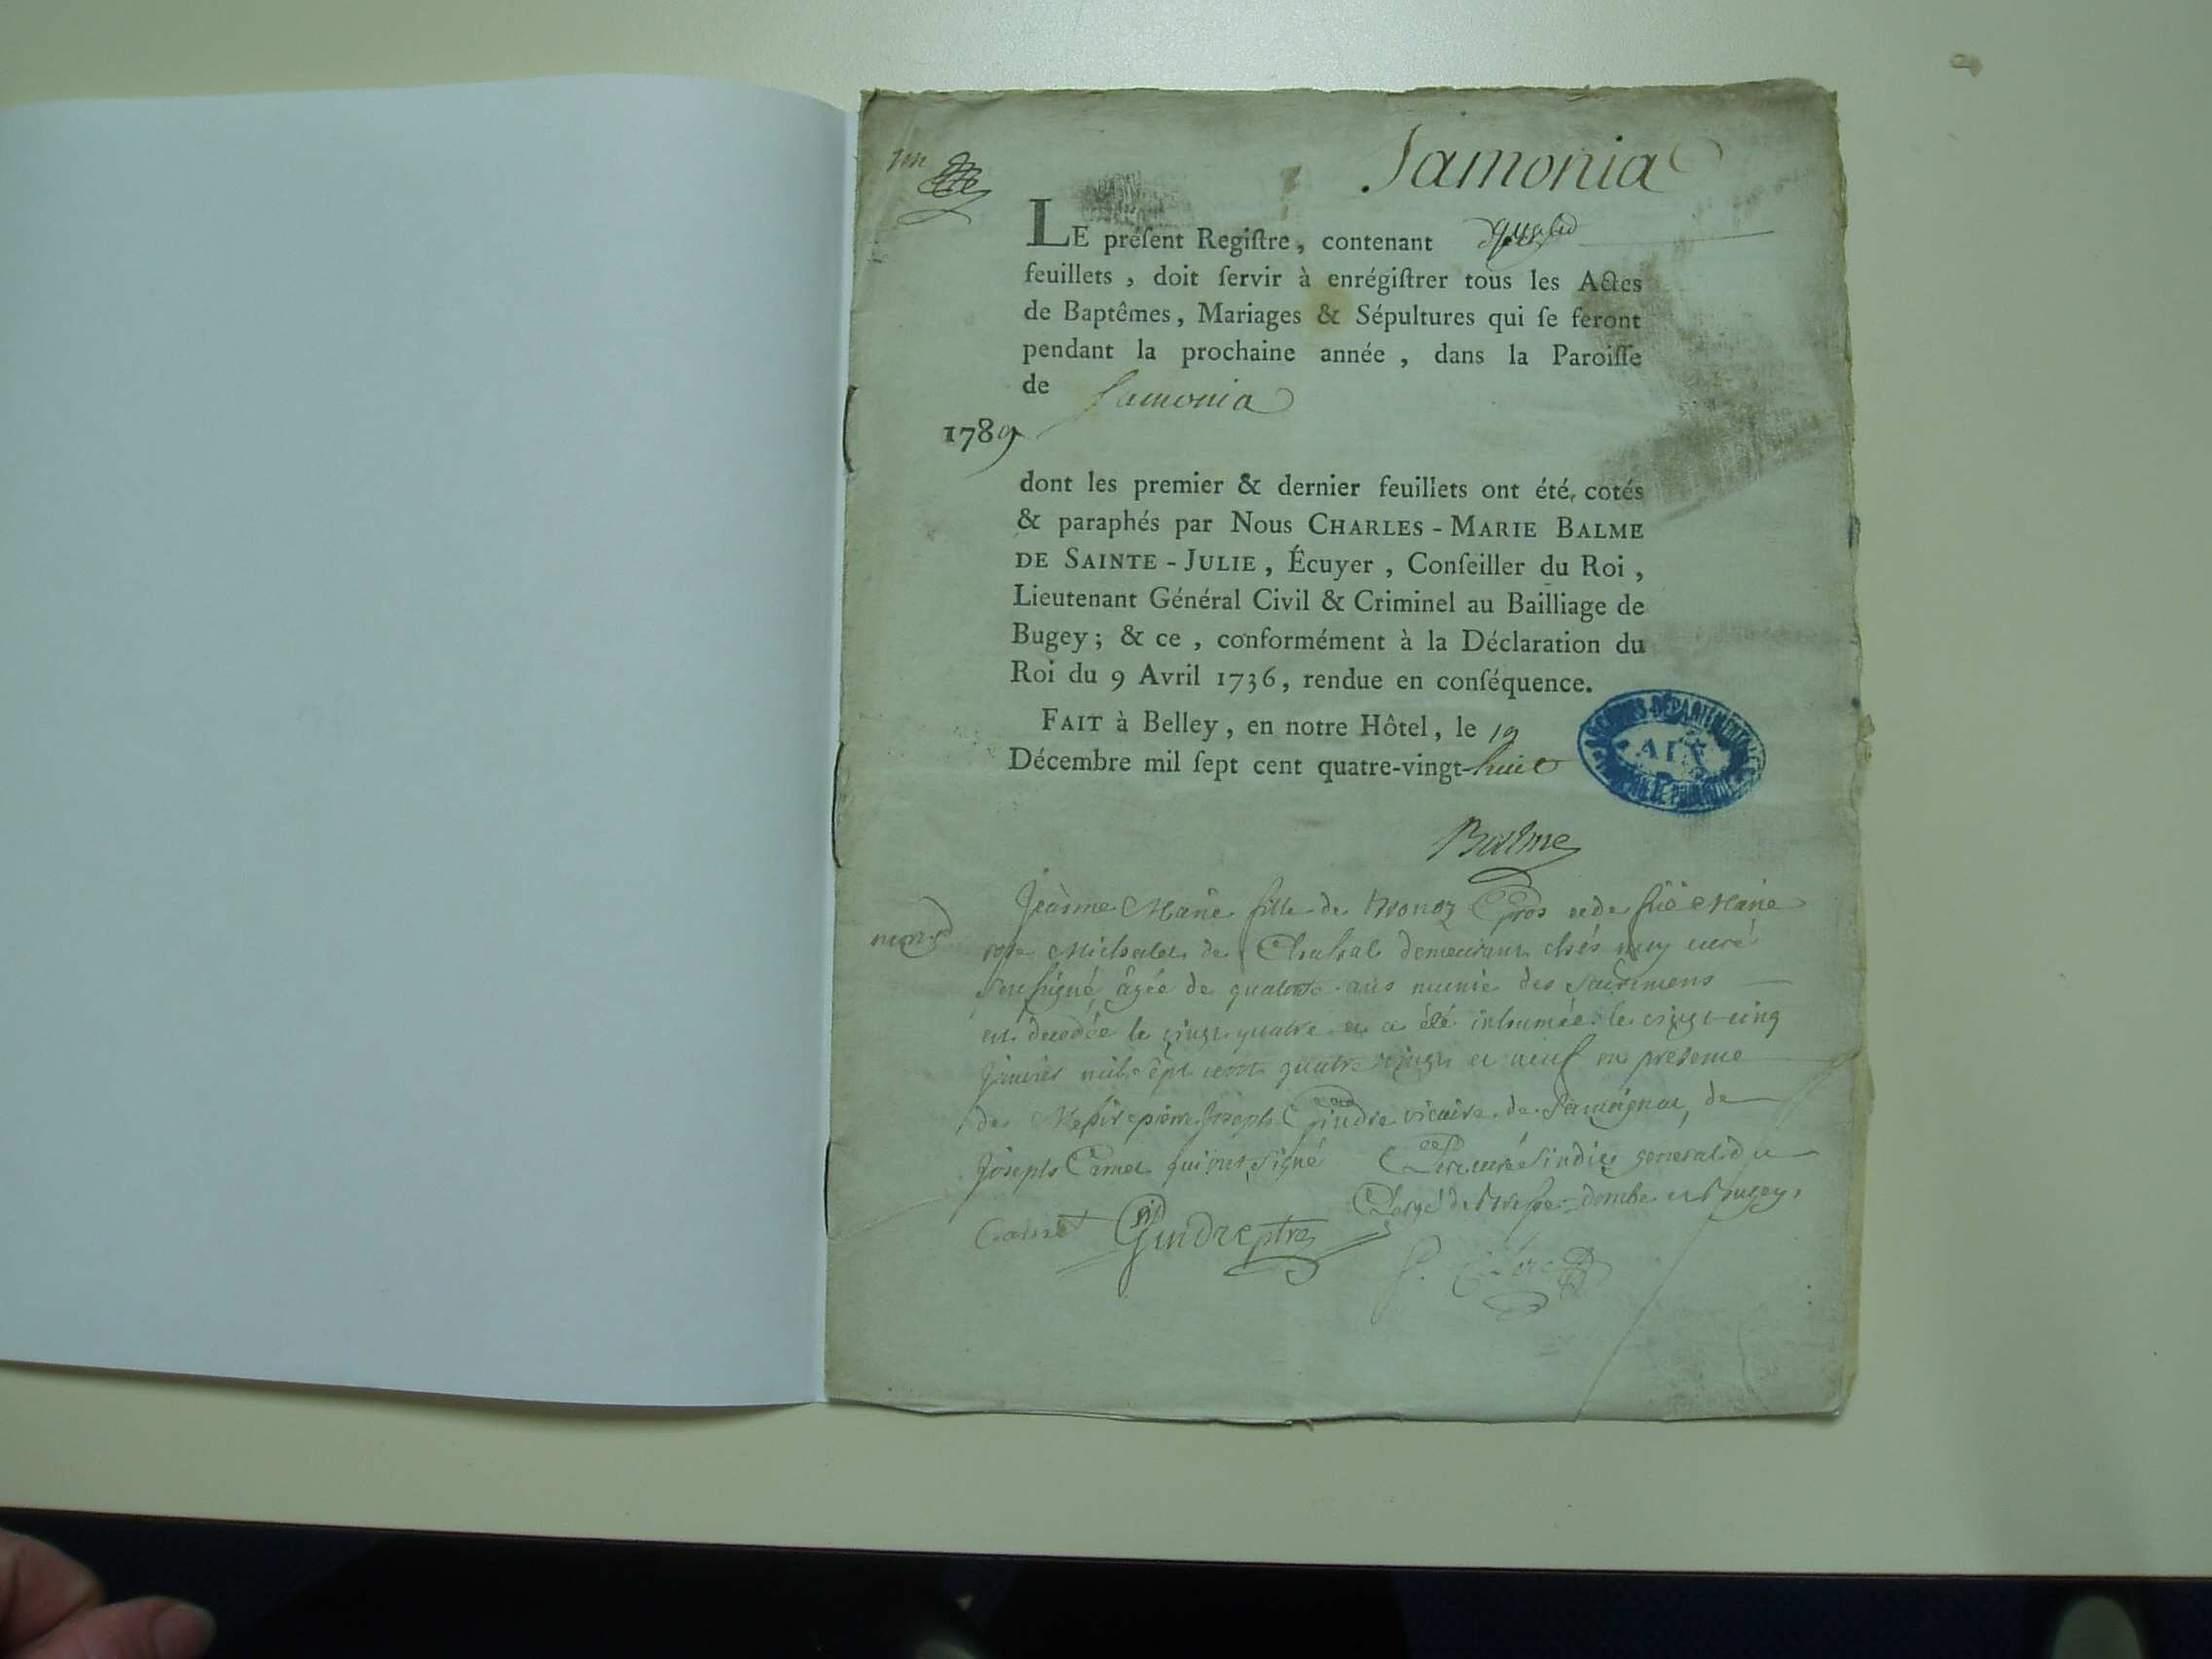 un
Samonia
LE préſent Regiſtre, contenant
feuillets, doit ſervir à enrégiſtrer tous les Actes
de Baptêmes, Mariages & Sépultures qui ſe feront
pendant la prochaine année, dans la Paroiſſe
de Samonia
1789
dont les premier & dernier feuillets ont été cotés
& paraphés par Nous CHARLES-MARIE BALME
DE SAINTE-JULIE, Écuyer, Conſeiller du Roi,
Lieutenant Général Civil & Criminel au Bailliage de
Bugey; & ce, conformément à la Déclaration du
Roi du 9 Avril 1736, rendue en conſéquence.
FAIT à Belley, en notre Hôtel, le 19
Décembre mil ſept cent quatre-vingt-huit
ARCHIVES DÉPARTEMENTALES
AIN
Balme
Jeanne Marie fille de et de Marie
de demeurant chés moy curé
soussigné, âgée de quatorze ans munie des sacremens
est décédée le vingt quatre et a été inhumée le vingt cinq
janvier mil sept cent quatre vingt et neuf en presence
de Messire pierre Joseph Gindre vicaire de Samoignat, de
Joseph qui ont signé curé sindic general du
Clergé de Bresse Dombe et Bugey.
Gindre ptre